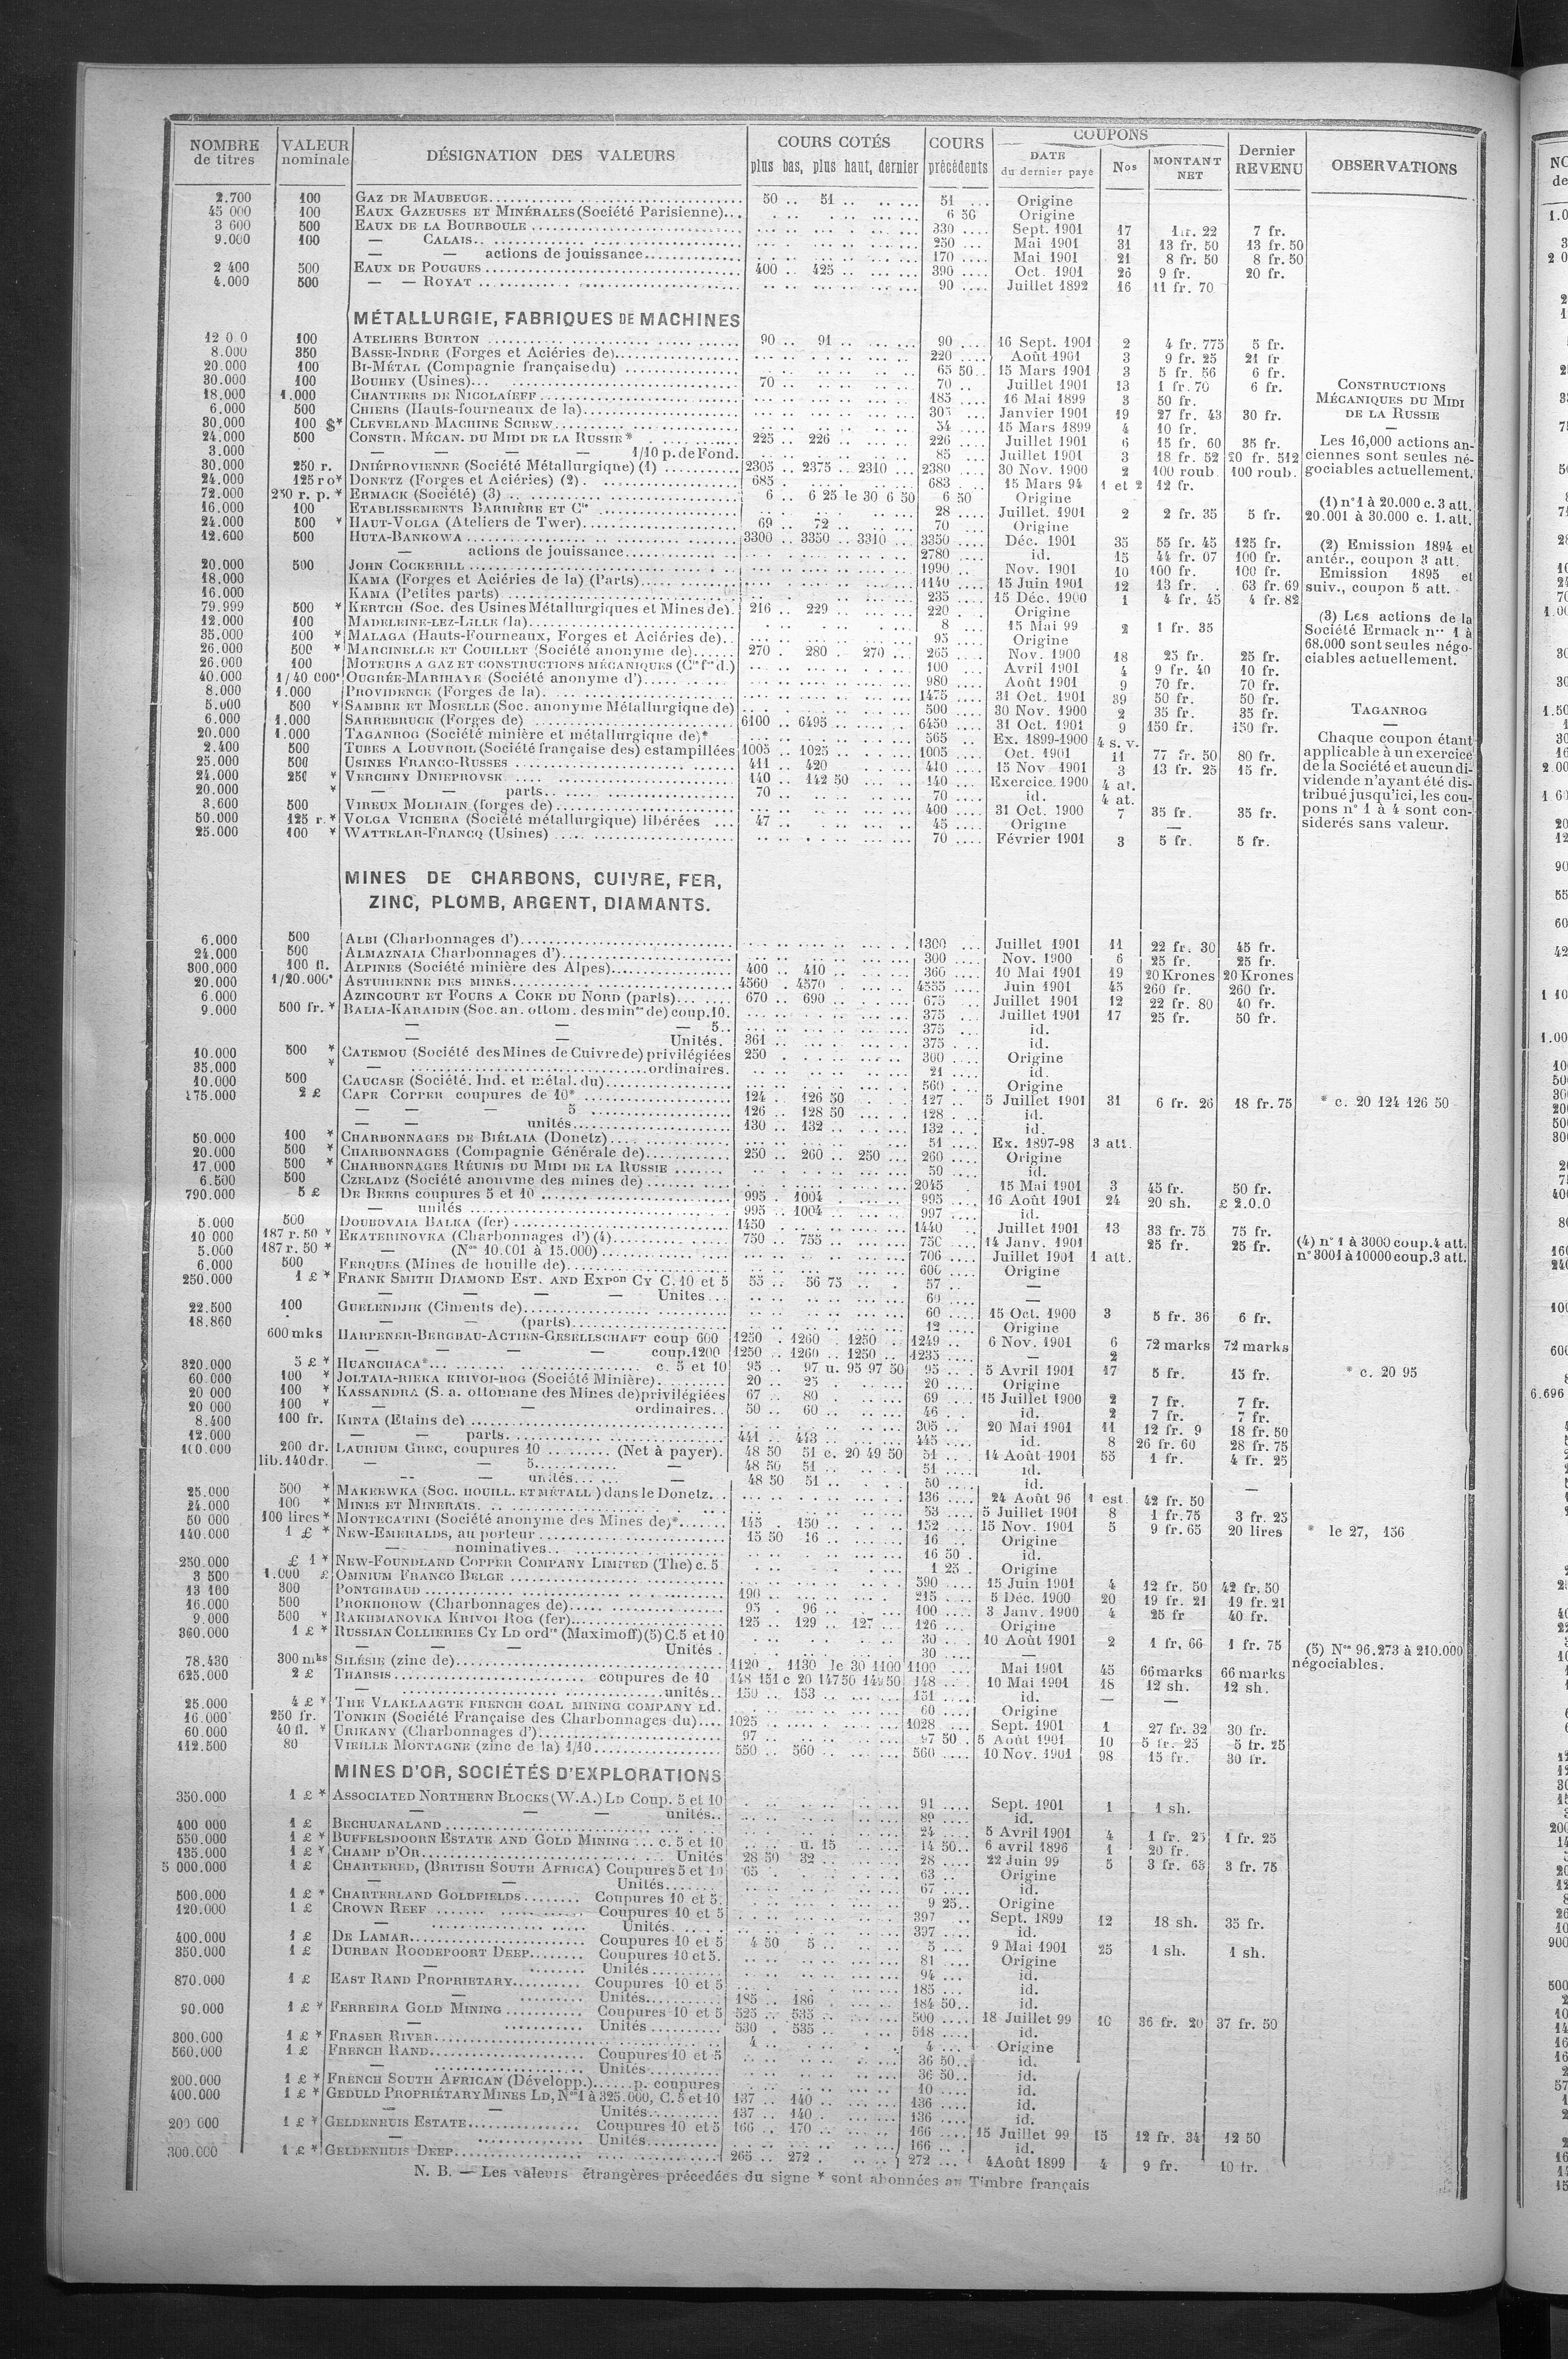 NOMBRE de titres | VALEUR nominale | DÉSIGNATION DES VALEURS | COURS COTÉS plus bas, plus haut, dernier | COURS précédents | COUPONS DATE du dernier payé | Nos | MONTANT NET | Dernier REVENU | OBSERVATIONS
2.700 100 GAZ DE MAUBEUGE 50 .. 51 .. 51 Origine
45 000 100 EAUX GAZEUSES ET MINÉRALES (Société Parisienne) 6 50 Origine
3 600 500 EAUX DE LA BOURBOULE 330 Sept. 1901 17 1 fr. 22 7 fr.
9.000 100 — CALAIS 250 Mai 1901 31 13 fr. 50 13 fr. 50
— — actions de jouissance 170 Mai 1901 21 8 fr. 50 8 fr. 50
2 400 500 EAUX DE POUGUES 400 .. 425 390 Oct. 1901 26 9 fr. 20 fr.
4.000 500 — — ROYAT 90 Juillet 1892 16 11 fr. 70
MÉTALLURGIE, FABRIQUES DE MACHINES
12 0 0 100 ATELIERS BURTON 90 .. 91 90 16 Sept. 1901 2 4 fr. 775 5 fr.
8.000 350 BASSE-INDRE (Forges et Aciéries de) 220 Août 1901 3 9 fr. 25 21 fr
20.000 100 BI-MÉTAL (Compagnie française du) 65 50 15 Mars 1901 3 5 fr. 56 6 fr.
30.000 100 BOUHEY (Usines) 70 70 Juillet 1901 13 1 fr. 70 6 fr.
18,000 1.000 CHANTIERS DE NICOLAÏEFF 185 16 Mai 1899 3 50 fr.
6.000 500 CHIERS (Hauts-fourneaux de la) 305 Janvier 1901 19 27 fr. 43 30 fr.
30.000 100 $* CLEVELAND MACHINE SCREW 34 15 Mars 1899 4 10 fr.
24.000 500 CONSTR. MÉCAN. DU MIDI DE LA RUSSIE* 225 .. 226 226 Juillet 1901 6 15 fr. 60 35 fr.
3.000 — — — — 1/10 p. de Fond. 85 Juillet 1901 3 18 fr. 52 20 fr. 512
30.000 250 r. DNIÉPROVIENNE (Société Métallurgique) (1) 2305 .. 2375 .. 2310 2380 30 Nov. 1900 2 100 roub. 100 roub.
24.000 125 r o* DONETZ (Forges et Aciéries) (2) 685 683 15 Mars 94 1 et 2 12 fr.
72.000 250 r. p. * ERMACK (Société) (3) 6 .. 6 25 le 30 6 50 6 50 Origine
16.000 100 ETABLISSEMENTS BARRIÈRE ET Cie 28 Juillet. 1901 2 2 fr. 35 5 fr.
24.000 500 * HAUT-VOLGA (Ateliers de Twer) 69 .. 72 70 Origine
12.600 500 HUTA-BANKOWA 3300 .. 3350 .. 3310 3350 Déc. 1901 35 55 fr. 45 125 fr.
— actions de jouissance 2780 id. 15 44 fr. 07 100 fr.
20.000 500 JOHN COCKERILL 1990 Nov. 1901 10 100 fr. 100 fr.
18.000 KAMA (Forges et Aciéries de la) (Parts) 1140 15 Juin 1901 12 13 fr. 63 fr. 69
16.000 KAMA (Petites parts) 235 15 Déc. 1900 1 4 fr. 45 4 fr. 82
79.999 500 * KERTCH (Soc. des Usines Métallurgiques et Mines de) 216 .. 229 220 Origine
12.000 100 MADELEINE-LEZ-LILLE (la) 8 15 Mai 99 2 1 fr. 35
35.000 100 * MALAGA (Hauts-Fourneaux, Forges et Aciéries de) 95 Origine
26.000 500 * MARCINELLE ET COUILLET (Société anonyme de) 270 . 280 . 270 265 Nov. 1900 18 25 fr. 25 fr.
26.000 100 MOTEURS A GAZ ET CONSTRUCTIONS MÉCANIQUES (Cie fse d.) 100 Avril 1901 4 9 fr. 40 10 fr.
40.000 1/40 000e OUGRÉE-MARIHAYE (Société anonyme d') 980 Août 1901 9 70 fr. 70 fr.
8.000 1.000 PROVIDENCE (Forges de la) 1475 31 Oct. 1901 39 50 fr. 50 fr.
5.000 500 * SAMBRE ET MOSELLE (Soc. anonyme Métallurgique de) 500 30 Nov. 1900 2 35 fr. 35 fr.
6.000 1.000 SARREBRUCK (Forges de) 6100 .. 6495 6450 31 Oct. 1901 9 150 fr. 150 fr.
20.000 1.000 TAGANROG (Société minière et métallurgique de)* 565 Ex. 1899-1900 4 s. v.
2.400 500 TUBES A LOUVROIL (Société française des) estampillées 1005 .. 1025 1005 Oct. 1901 11 77 fr. 50 80 fr.
25.000 500 USINES FRANCO-RUSSES 411 .. 420 410 15 Nov 1901 3 13 fr. 25 15 fr.
24.000 250 * VERCHNY DNIEPROVSK 140 .. 142 50 140 Exercice. 1900 4 at.
20.000 * — — parts 70 70 id. 4 at.
3.600 500 VIREUX MOLHAIN (forges de) 400 31 Oct. 1900 7 35 fr. 35 fr.
50.000 125 r. * VOLGA VICHERA (Société métallurgique) libérées 47 45 Origine —
25.000 100 * WATTELAR-FRANCQ (Usines) 70 Février 1901 3 5 fr. 5 fr.
CONSTRUCTIONS
MÉCANIQUES DU MIDI
DE LA RUSSIE
—
Les 16,000 actions an-
ciennes sont seules né-
gociables actuellement.
(1) n° 1 à 20.000 c. 3 att.
20.001 à 30.000 c. 1. att.
(2) Emission 1894 et
antér., coupon 3 att.
Emission 1895 et
suiv., coupon 5 att.
(3) Les actions de la
Société Ermack nos 1 à
68.000 sont seules négo-
ciables actuellement.
TAGANROG
—
Chaque coupon étant
applicable à un exercice
de la Société et aucun di-
vidende n'ayant été dis-
tribué jusqu'ici, les cou-
pons n° 1 à 4 sont con-
siderés sans valeur.
MINES DE CHARBONS, CUIVRE, FER,
ZINC, PLOMB, ARGENT, DIAMANTS.
6.000 500 ALBI (Charbonnages d') 1300 Juillet 1901 11 22 fr. 30 45 fr.
24.000 500 ALMAZNAIA Charbonnages d') 300 Nov. 1900 6 25 fr. 25 fr.
300.000 100 fl. ALPINES (Société minière des Alpes) 400 .. 410 360 10 Mai 1901 19 20 Krones 20 Krones
20.000 1/20.000e ASTURIENNE DES MINES 4560 .. 4570 4555 Juin 1901 45 260 fr. 260 fr.
6.000 AZINCOURT ET FOURS A COKE DU NORD (parts) 670 .. 690 675 Juillet 1901 12 22 fr. 80 40 fr.
9.000 500 fr. * BALIA-KARAIDIN (Soc. an. ottom. des mines de) coup. 10. 375 Juillet 1901 17 25 fr. 50 fr.
— — — 5 375 id.
— — Unités. 361 375 id.
10.000 500 * CATEMOU (Société des Mines de Cuivre de) privilégiées 250 300 Origine
35.000 * — ordinaires. 21 id.
10.000 500 CAUCASE (Société. Ind. et métal. du) 560 Origine
175.000 2 £ CAPE COPPER coupures de 10* 124 .. 126 50 127 5 Juillet 1901 31 6 fr. 26 18 fr. 75 * c. 20 124 126 50
— — — 5 126 .. 128 50 128 id.
— — unités 130 .. 132 132 id.
50.000 100 * CHARBONNAGES DE BIÉLAIA (Donetz) 51 Ex. 1897-98 3 att.
20.000 500 * CHARBONNAGES (Compagnie Générale de) 250 .. 260 .. 250 260 Origine
17.000 500 * CHARBONNAGES RÉUNIS DU MIDI DE LA RUSSIE 50 id.
6.500 500 CZELADZ (Société anonyme des mines de) 2045 15 Mai 1901 3 45 fr. 50 fr.
790.000 5 £ DE BEERS coupures 5 et 10 995 . 1004 995 16 Août 1901 24 20 sh. £ 2.0.0
— unités 995 .. 1004 997 id.
5.000 500 DOUBOVAIA BALKA (fer) 1450 1440 Juillet 1901 13 33 fr. 75 75 fr.
10 000 187 r. 50 * EKATERINOVKA (Charbonnages d') (4) 750 .. 755 750 14 Janv. 1901 25 fr. 25 fr. (4) n° 1 à 3000 coup. 4 att.
5.000 187 r. 50 * — (Nos 10.001 à 15.000) 706 Juillet 1901 1 att. n° 3001 à 10000 coup. 3 att.
6.000 500 FERQUES (Mines de houille de) 600 Origine
250.000 1 £ * FRANK SMITH DIAMOND EST. AND EXPon CY C. 10 et 5 55 .. 56 75 57 —
— — — — Unites 60 —
22.500 100 GUELENDJIK (Ciments de) 60 15 Oct. 1900 3 5 fr. 36 6 fr.
18.860 — — (parts) 12 Origine
600 mks HARPENER-BERGBAU-ACTIEN-GESELLSCHAFT coup 600 1250 . 1260 . 1250 1249 6 Nov. 1901 6 72 marks 72 marks
— — — — coup. 1200 1250 .. 1260 .. 1250 1235 — 2
320.000 5 £ * HUANCHACA* c. 5 et 10 95 .. 97 u. 95 97 50 95 5 Avril 1901 17 5 fr. 15 fr. * c. 20 95
60.000 100 * JOLTAIA-RIEKA KRIVOI-ROG (Société Minière) 20 .. 25 20 Origine
20 000 100 * KASSANDRA (S. a. ottomane des Mines de) privilégiées 67 .. 80 69 15 Juillet 1900 2 7 fr. 7 fr.
20 000 100 * — — ordinaires 50 .. 60 46 id. 2 7 fr. 7 fr.
8.400 100 fr. KINTA (Etains de) 305 20 Mai 1901 11 12 fr. 9 18 fr. 50
12.000 — — parts 441 .. 443 445 id. 8 26 fr. 60 28 fr. 75
100.000 200 dr. LAURIUM GREC, coupures 10 (Net à payer). 48 50 51 c. 20 49 50 51 14 Août 1901 55 1 fr. 4 fr. 25
lib. 140 dr. — — 5 — 48 50 51 51 id.
— — unités — 48 50 51 50 id. —
25.000 500 * MAKEEWKA (SOC. HOUILL. ET MÉTALL) dans le Donetz 136 24 Août 96 1 est 42 fr. 50
24.000 100 * MINES ET MINERAIS 53 5 Juillet 1901 8 1 fr. 75 3 fr. 25
50 000 100 lires * MONTECATINI (Société anonyme des Mines de)* 145 . 150 152 15 Nov. 1901 5 9 fr. 65 20 lires * le 27, 156
140.000 1 £ * NEW-EMERALDS, au porteur 15 50 16 16 Origine
— nominatives 16 50 id.
250.000 £ 1 * NEW-FOUNDLAND COPPER COMPANY LIMITED (The) c. 5 1 25 Origine
3 500 1.000 £ OMNIUM FRANCO BELGE 590 15 Juin 1901 4 12 fr. 50 42 fr. 50
13 100 300 PONTGIBAUD 190 215 5 Déc. 1900 20 19 fr. 21 19 fr. 21
16.000 500 PROKHOROW (Charbonnages de) 95 . 96 100 3 Janv. 1900 4 25 fr 40 fr.
9.000 500 * RAKHMANOVKA KRIVOI ROG (fer) 125 .. 129 .. 127 126 Origine
360.000 1 £ * RUSSIAN COLLIERIES CY LD ordre (Maximoff) (5) C. 5 et 10 30 10 Août 1901 2 1 fr. 66 1 fr. 75 (5) Nos 96.273 à 210.000
— — — Unités 30 — négociables.
78.430 300 mks SILÉSIE (zinc de) 1120 . 1130 le 30 1100 1100 Mai 1901 45 66 marks 66 marks
625.000 2 £ THARSIS coupures de 10 148 151 c 20 147 50 149 50 148 10 Mai 1901 18 12 sh. 12 sh.
— unités 150 .. 153 151 id. — —
25.000 4 £ * THE VLAKLAAGTE FRENCH COAL MINING COMPANY Ld. 60 Origine
16.000 250 fr. TONKIN (Société Française des Charbonnages du) 1025 1028 Sept. 1901 1 27 fr. 32 30 fr.
60.000 40 fl. * URIKANY (Charbonnages d') 97 97 50 5 Août 1901 10 5 fr. 25 5 fr. 25
112.500 80 VIEILLE MONTAGNE (zinc de la) 1/10 550 .. 560 560 10 Nov. 1901 98 15 fr. 30 fr.
MINES D'OR, SOCIÉTÉS D'EXPLORATIONS
350.000 1 £ * ASSOCIATED NORTHERN BLOCKS (W.A.) LD Coup. 5 et 10 91 Sept. 1901 1 1 sh.
— — — unités 89 id.
400 000 1 £ BECHUANALAND 24 5 Avril 1901 4 1 fr. 25 1 fr. 25
550.000 1 £ * BUFFELSDOORN ESTATE AND GOLD MINING c. 5 et 10 u. 15 14 50 6 avril 1896 1 20 fr.
135.000 1 £ * CHAMP D'OR Unités 28 50 32 28 22 Juin 99 5 3 fr. 65 3 fr. 75
5 000.000 1 £ CHARTERED, (BRITISH SOUTH AFRICA) Coupures 5 et 10 65 63 Origine
— — Unités 67 id.
500.000 1 £ * CHARTERLAND GOLDFIELDS Coupures 10 et 5. 9 25 Origine
120.000 1 £ CROWN REEF Coupures 10 et 5 397 Sept. 1899 12 18 sh. 35 fr.
— Unités 397 id.
400.000 1 £ DE LAMAR Coupures 10 et 5 4 50 5 5 9 Mai 1901 25 1 sh. 1 sh.
350.000 1 £ DURBAN ROODEPOORT DEEP Coupures 10 et 5. 81 Origine
— Unités 94 id.
870.000 1 £ EAST RAND PROPRIETARY Coupures 10 et 5 185 id.
— Unités 185 .. 186 184 50 id.
90.000 1 £ * FERREIRA GOLD MINING Coupures 10 et 5 525 .. 535 500 18 Juillet 99 10 36 fr. 20 37 fr. 50
— Unités 530 . 535 518 id.
300.000 1 £ * FRASER RIVER 4 4 Origine
560.000 1 £ FRENCH RAND Coupures 10 et 5 36 50 id.
— Unités 36 50 id.
200.000 1 £ * FRENCH SOUTH AFRICAN (Développ.) p. coupures 10 id.
400.000 1 £ * GEDULD PROPRIÉTARY MINES LD, Nos 1 à 325.000, C. 5 et 10 137 .. 140 136 id.
— — Unités 137 .. 140 136 id.
200 000 1 £ * GELDENHUIS ESTATE Coupures 10 et 5 166 .. 170 166 15 Juillet 99 15 12 fr. 34 12 50
— Unités 166 id.
300.000 1 £ * GELDENHUIS DEEP 265 .. 272 272 4 Août 1899 4 9 fr. 10 fr.
N. B. — Les valeurs étrangères précedées du signe * sont abonnées au Timbre français